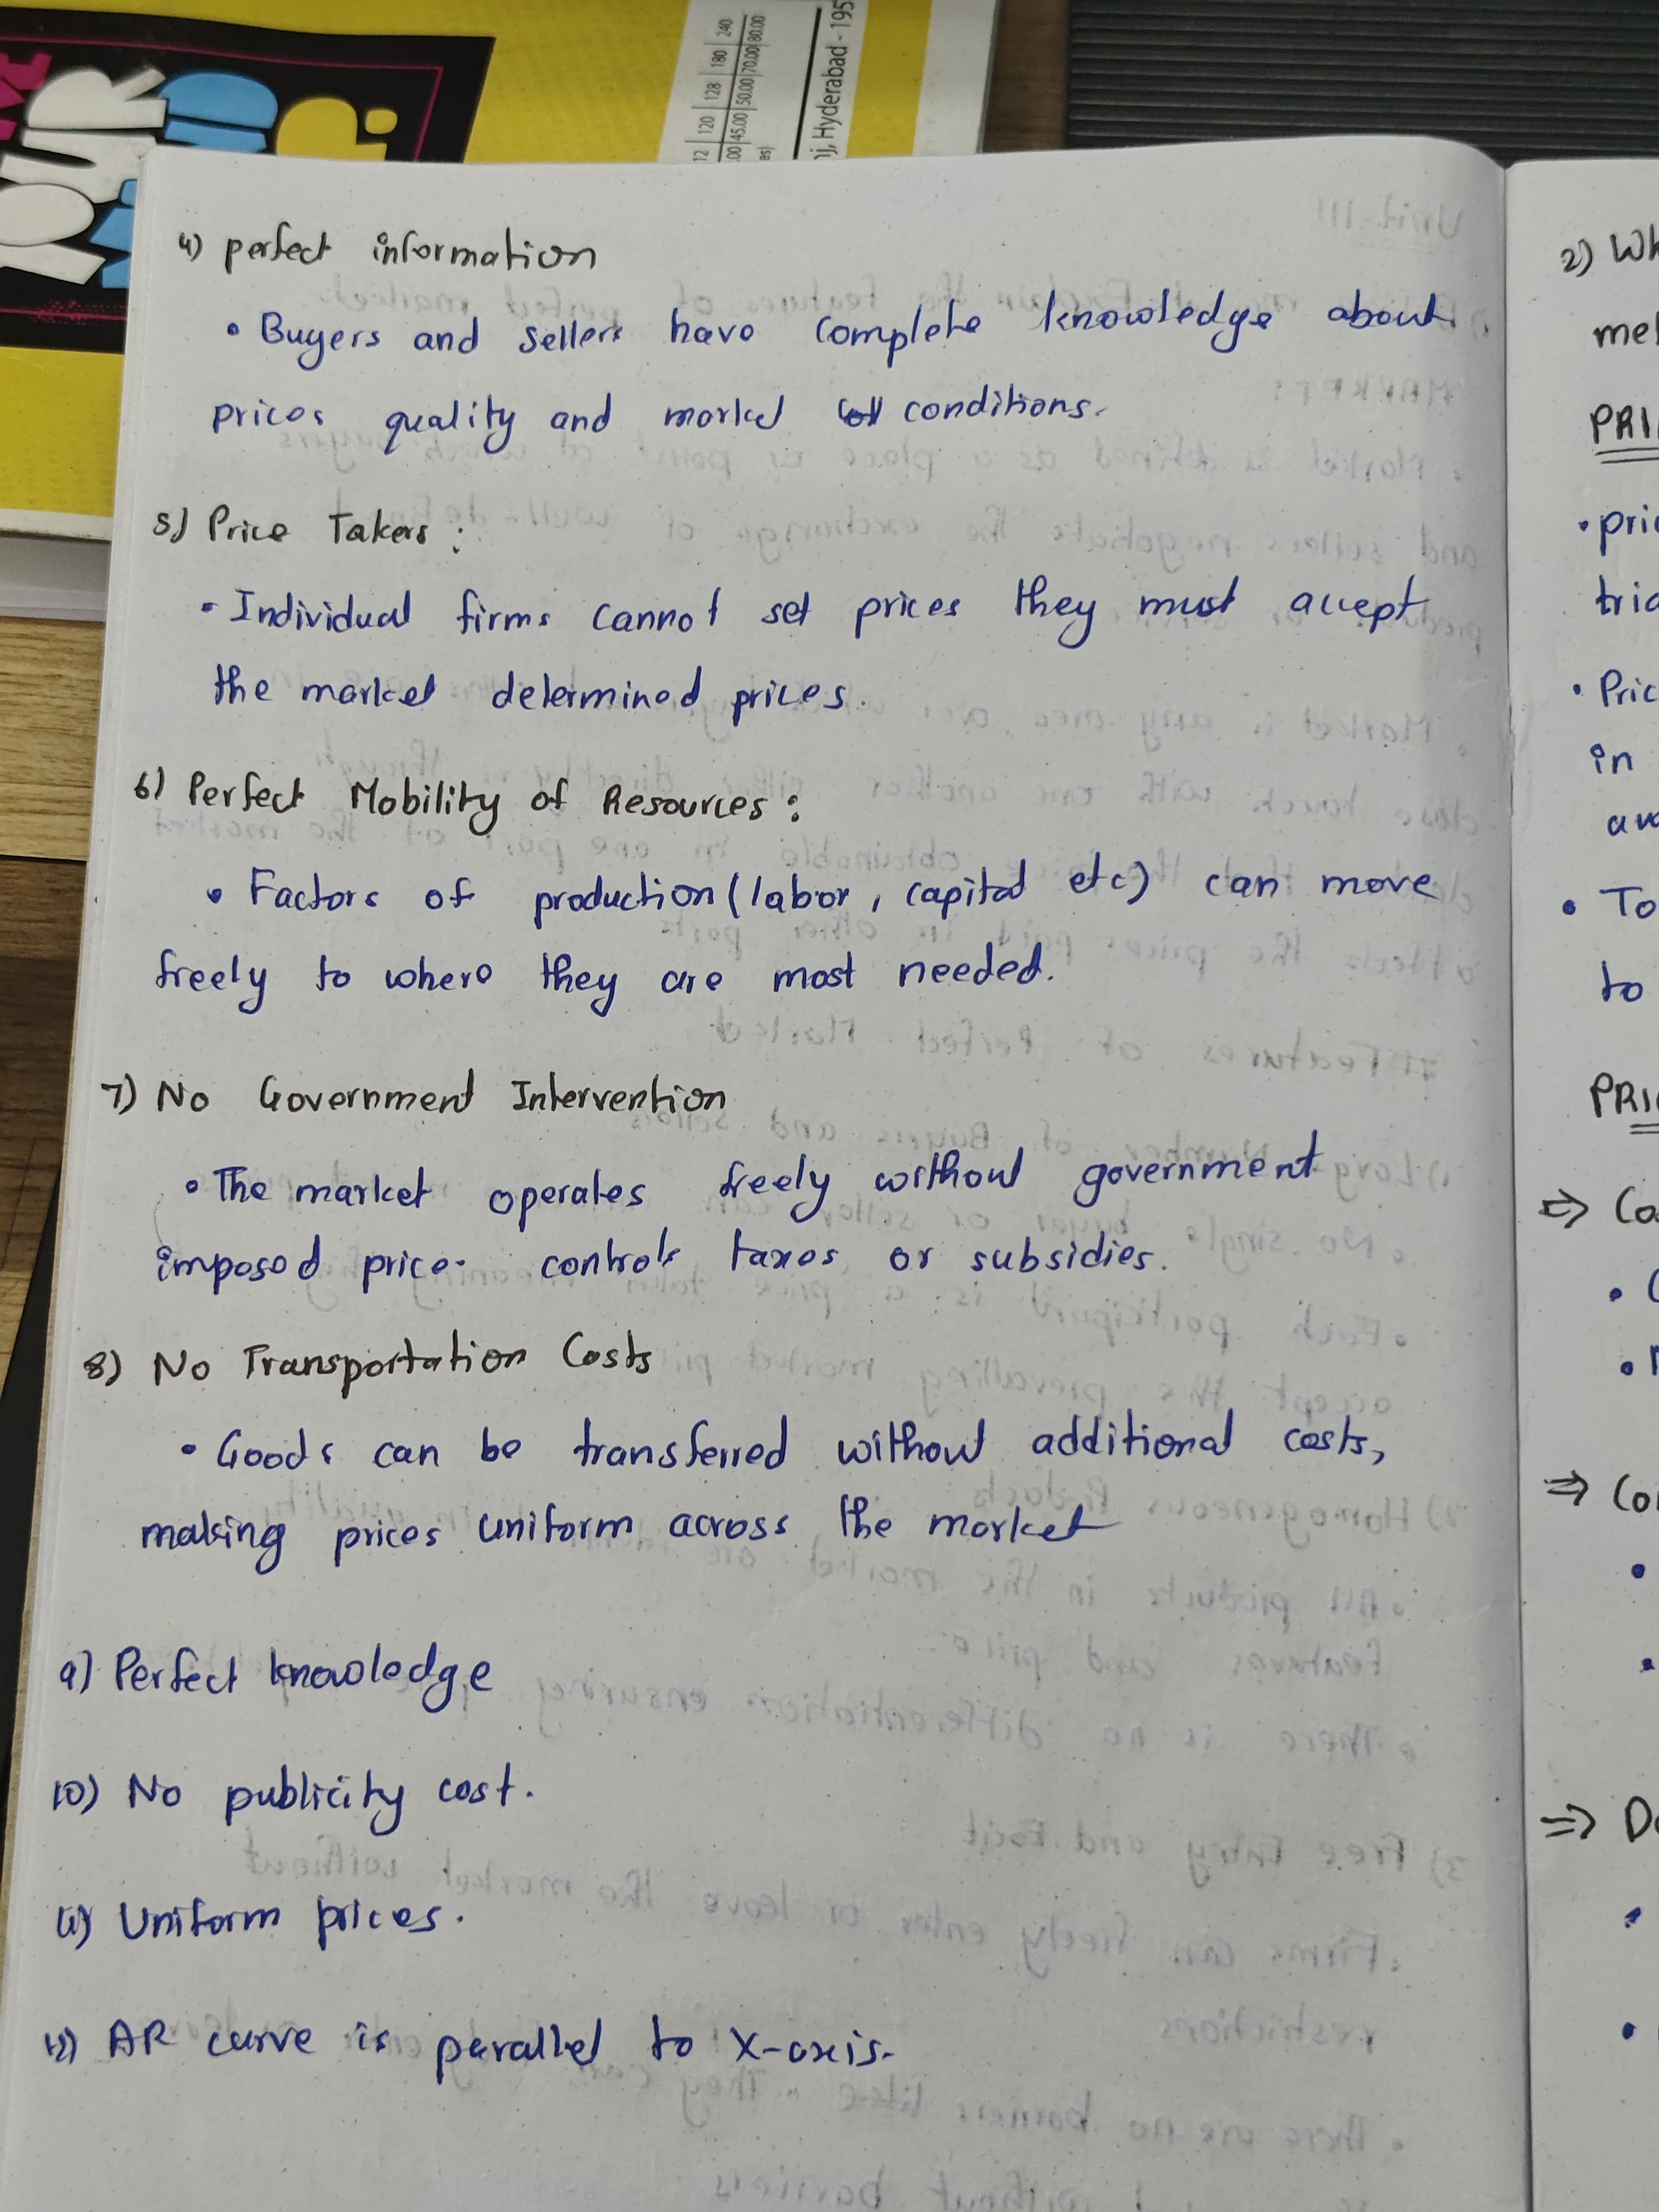 YOUR
12 120 128 180 240
.00 45.00 50.00 70.00 80.00
es)
j, Hyderabad - 195
4) perfect information
• Buyers and sellers have complete knowledge about
prices quality and market conditions.
5) Price Takers :
• Individual firms cannot set prices they must accept
the market determined prices.
6) Perfect Mobility of Resources :
• Factors of production (labor, capital etc) can move
freely to where they are most needed.
7) No Government Intervention
• The market operates freely without government
imposed price controls taxes or subsidies.
8) No Transportation Costs
• Goods can be transferred without additional costs,
making prices uniform across the market
9) Perfect knowledge
10) No publicity cost.
11) Uniform prices.
12) AR curve is parallel to X-axis.
2) Wh
met
PRI
• pric
tria
• Pric
in
ava
• To
to
PRI
⇒ Co
⇒ Co
⇒ De